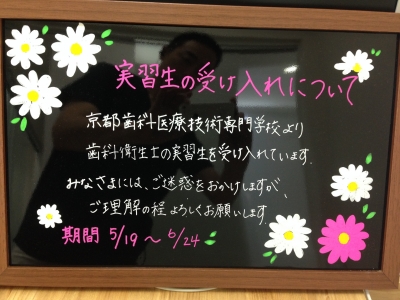 実習生の受け入れについて
京都歯科医療技術専門学校より
歯科衛生士の実習生を受け入れています.
みなさまには、ご迷惑をおかけしますが、
ご理解の程よろしくお願いします
期間 5/19～6/24